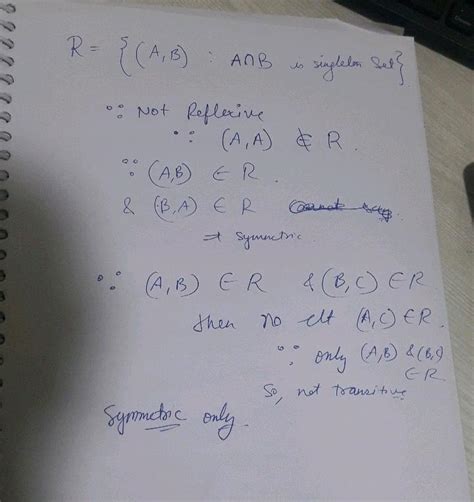 R = { (A, B) : A∩B is singleton set}
∵ Not Reflexive
∵ (A, A) ∉ R.
∵ (A,B) ∈ R.
& (B, A) ∈ R
⇒ symmetric.
∵ (A, B) ∈ R & (B, C) ∈ R
then no elt (A, C) ∈ R.
∵ only (A,B) & (B,C)
∈ R
So, not transitive
Symmetric only.